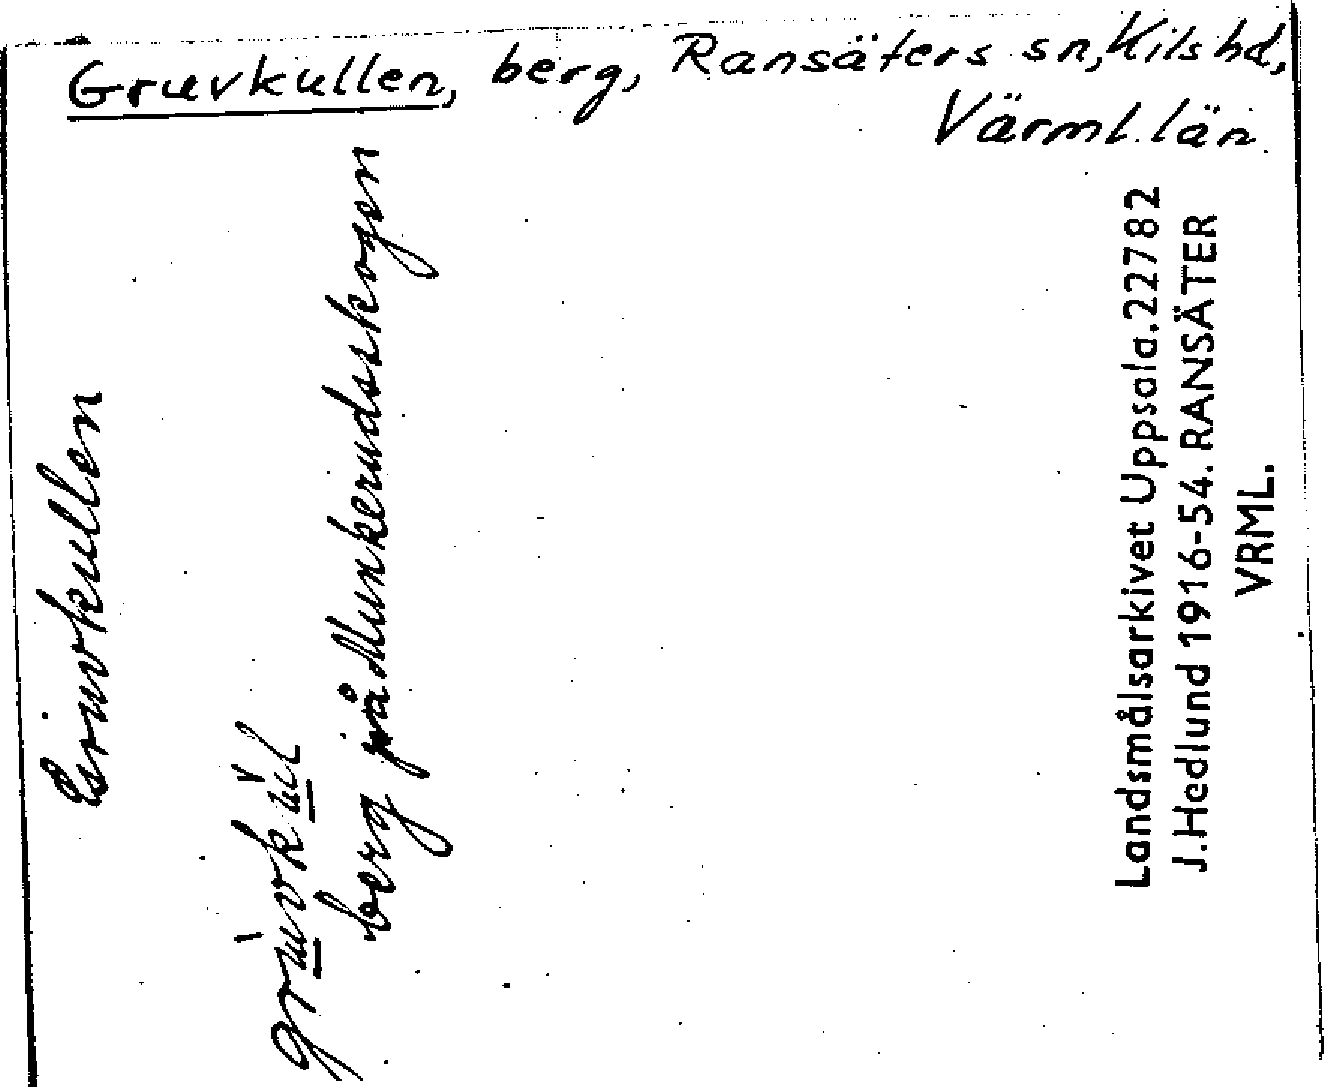 Gruvkullen, berg, Ransäters sn, Kils hd,
Värml. län.
Gruvkullen
berg på Munkerudsskogen
Landsmålsarkivet Uppsala. 22782
J. Hedlund 1916-54. RANSÄTER
VRML.